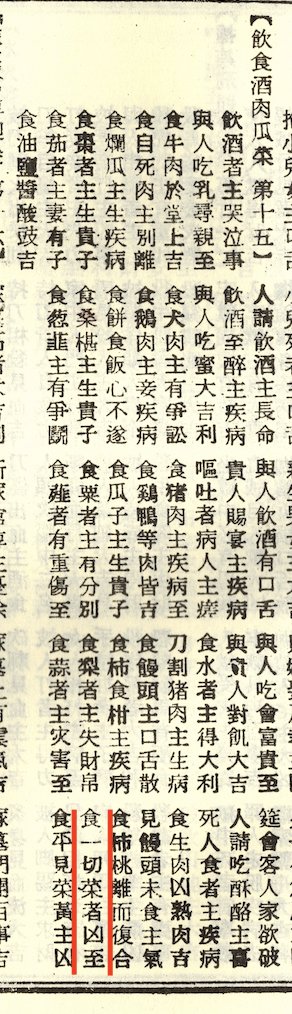 【飲食酒肉瓜菜 第十五】 人請飲酒主長命 與人飲酒有口舌 與人吃會富貴至 筵會客人家欲破
飲酒者主哭泣事 飲酒至醉主疾病 貴人賜宴主疾病 與貴人對飢大吉 人請吃酥酪主喜
與人吃乳尋親至 與人吃蜜大吉利 嘔吐者病人主瘥 食水者主得大利 死人食者主疾病
食牛肉於堂上吉 食犬肉主有爭訟 食猪肉主疾病至 刀割猪肉主生病 食生肉凶熟肉吉
食自死肉主別離 食鵝肉主妾疾病 食鷄鴨等肉皆吉 食饅頭主口舌散 見饅頭未食主氣
食爛瓜主生疾病 食餅食飯心不遂 食瓜子主生貴子 食柿食柑主疾病 食柿桃離而復合
食棗者主生貴子 食桑椹主生貴子 食粟者主有分別 食梨者主失財帛 食一切菜者凶至
食茄者主妻有子 食葱韮主有爭鬪 食薤者有重傷至 食蒜者主灾害至 食不見菜黃主凶
食油鹽醬酸豉吉